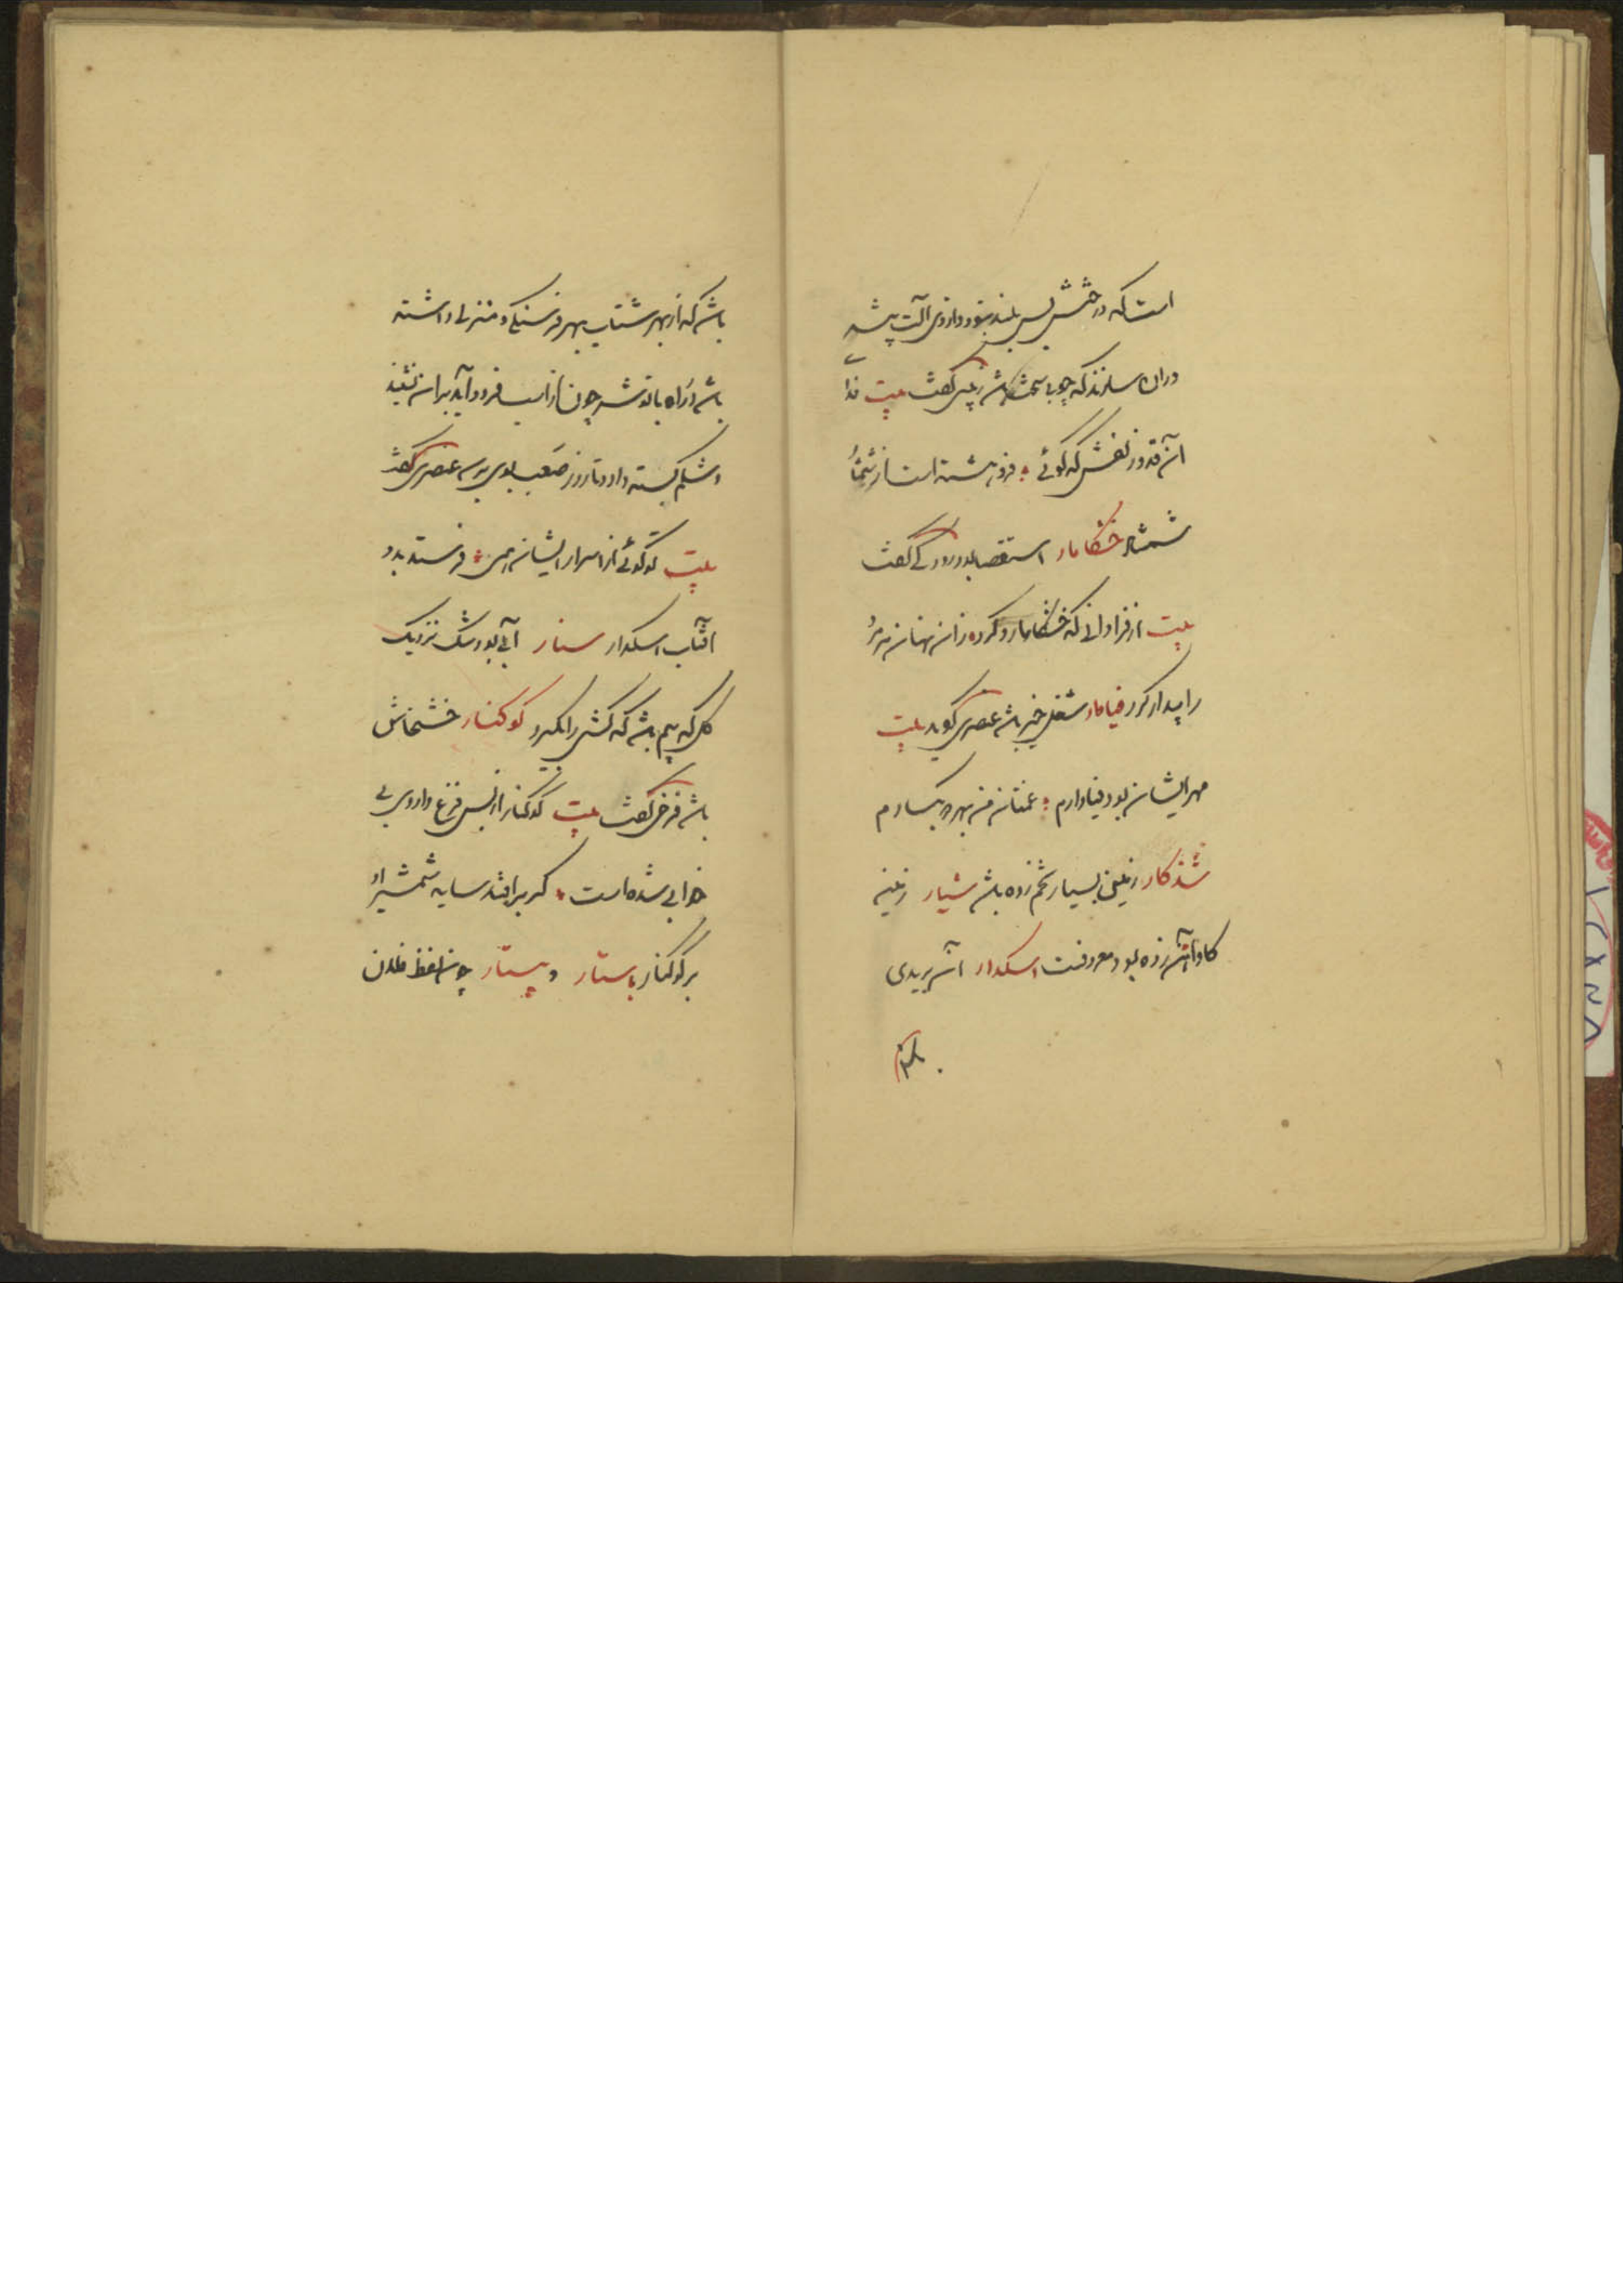 است که درختش بس بلند نبود و ازوی آلت پیشه
دران سازند که چوبی سخت باشد زینبی گفت بیت فدا
آن قد و زلفش که گوئی فروهشته است از شمشاد
شمشاد خشکامار استقصا بود رودکی گفت
بیت از فراوانی که خشکامار کرد زان نهان مر مرد
را بیدار کرد فیاوار شغل خیر باشد عنصری گوید بیت
مهر ایشان بود فیاوارم غمتان من بهر دو بگسارم
شدکار زمینی بسیار تخم زده باشد شیار زمین
کاو آهن زده بود معروفست اسکدار آن بریدی
باشد که از بهر شتاب بهر فرسنگی و منزلی داشته
باشد در راه تا شد چون از اسب فرود آید بران نشیند
و شکم بسته دارد تا روز صعب بوی نرسد عنصری گفت
بیت تو گوئی از اسرار ایشان همی فرستد بدو
آفتاب اسکدار سنار آبی بود تنک نزدیک
گل که بیم باشد که کشتی را بگیرد کوکنار خشخاش
باشد فرخی گفت بیت کوکنار از بس فزع داروی بی
خوابی شده است گر برافتد سایه شمشیر او
بر کوکنار باستار و بیستار چون لفظ فلان